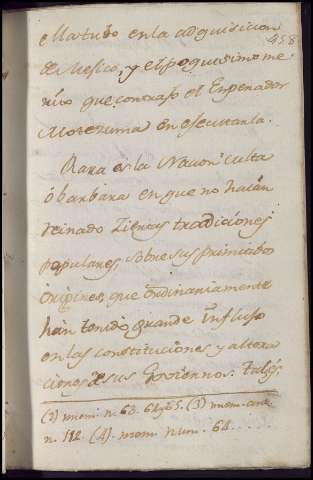 ella tubo en la adquisicion
458
de Mexico, y el poquisimo me
rito que contrajo el Enperador
Motezuma en esecutarla.
Rara es la Nacion culta
ó barbara en que no haian
reinado ziertas tradiciones
populares, sobre sus primitibos
origines, que ordinariamente
han tenido grande influjo
en las constituciones y altera
ciones de sus Goviernos. Tales
(2) mom. n. 63. 64 y 65. (3) mom.
n. 112. (4). mom. num. 64.